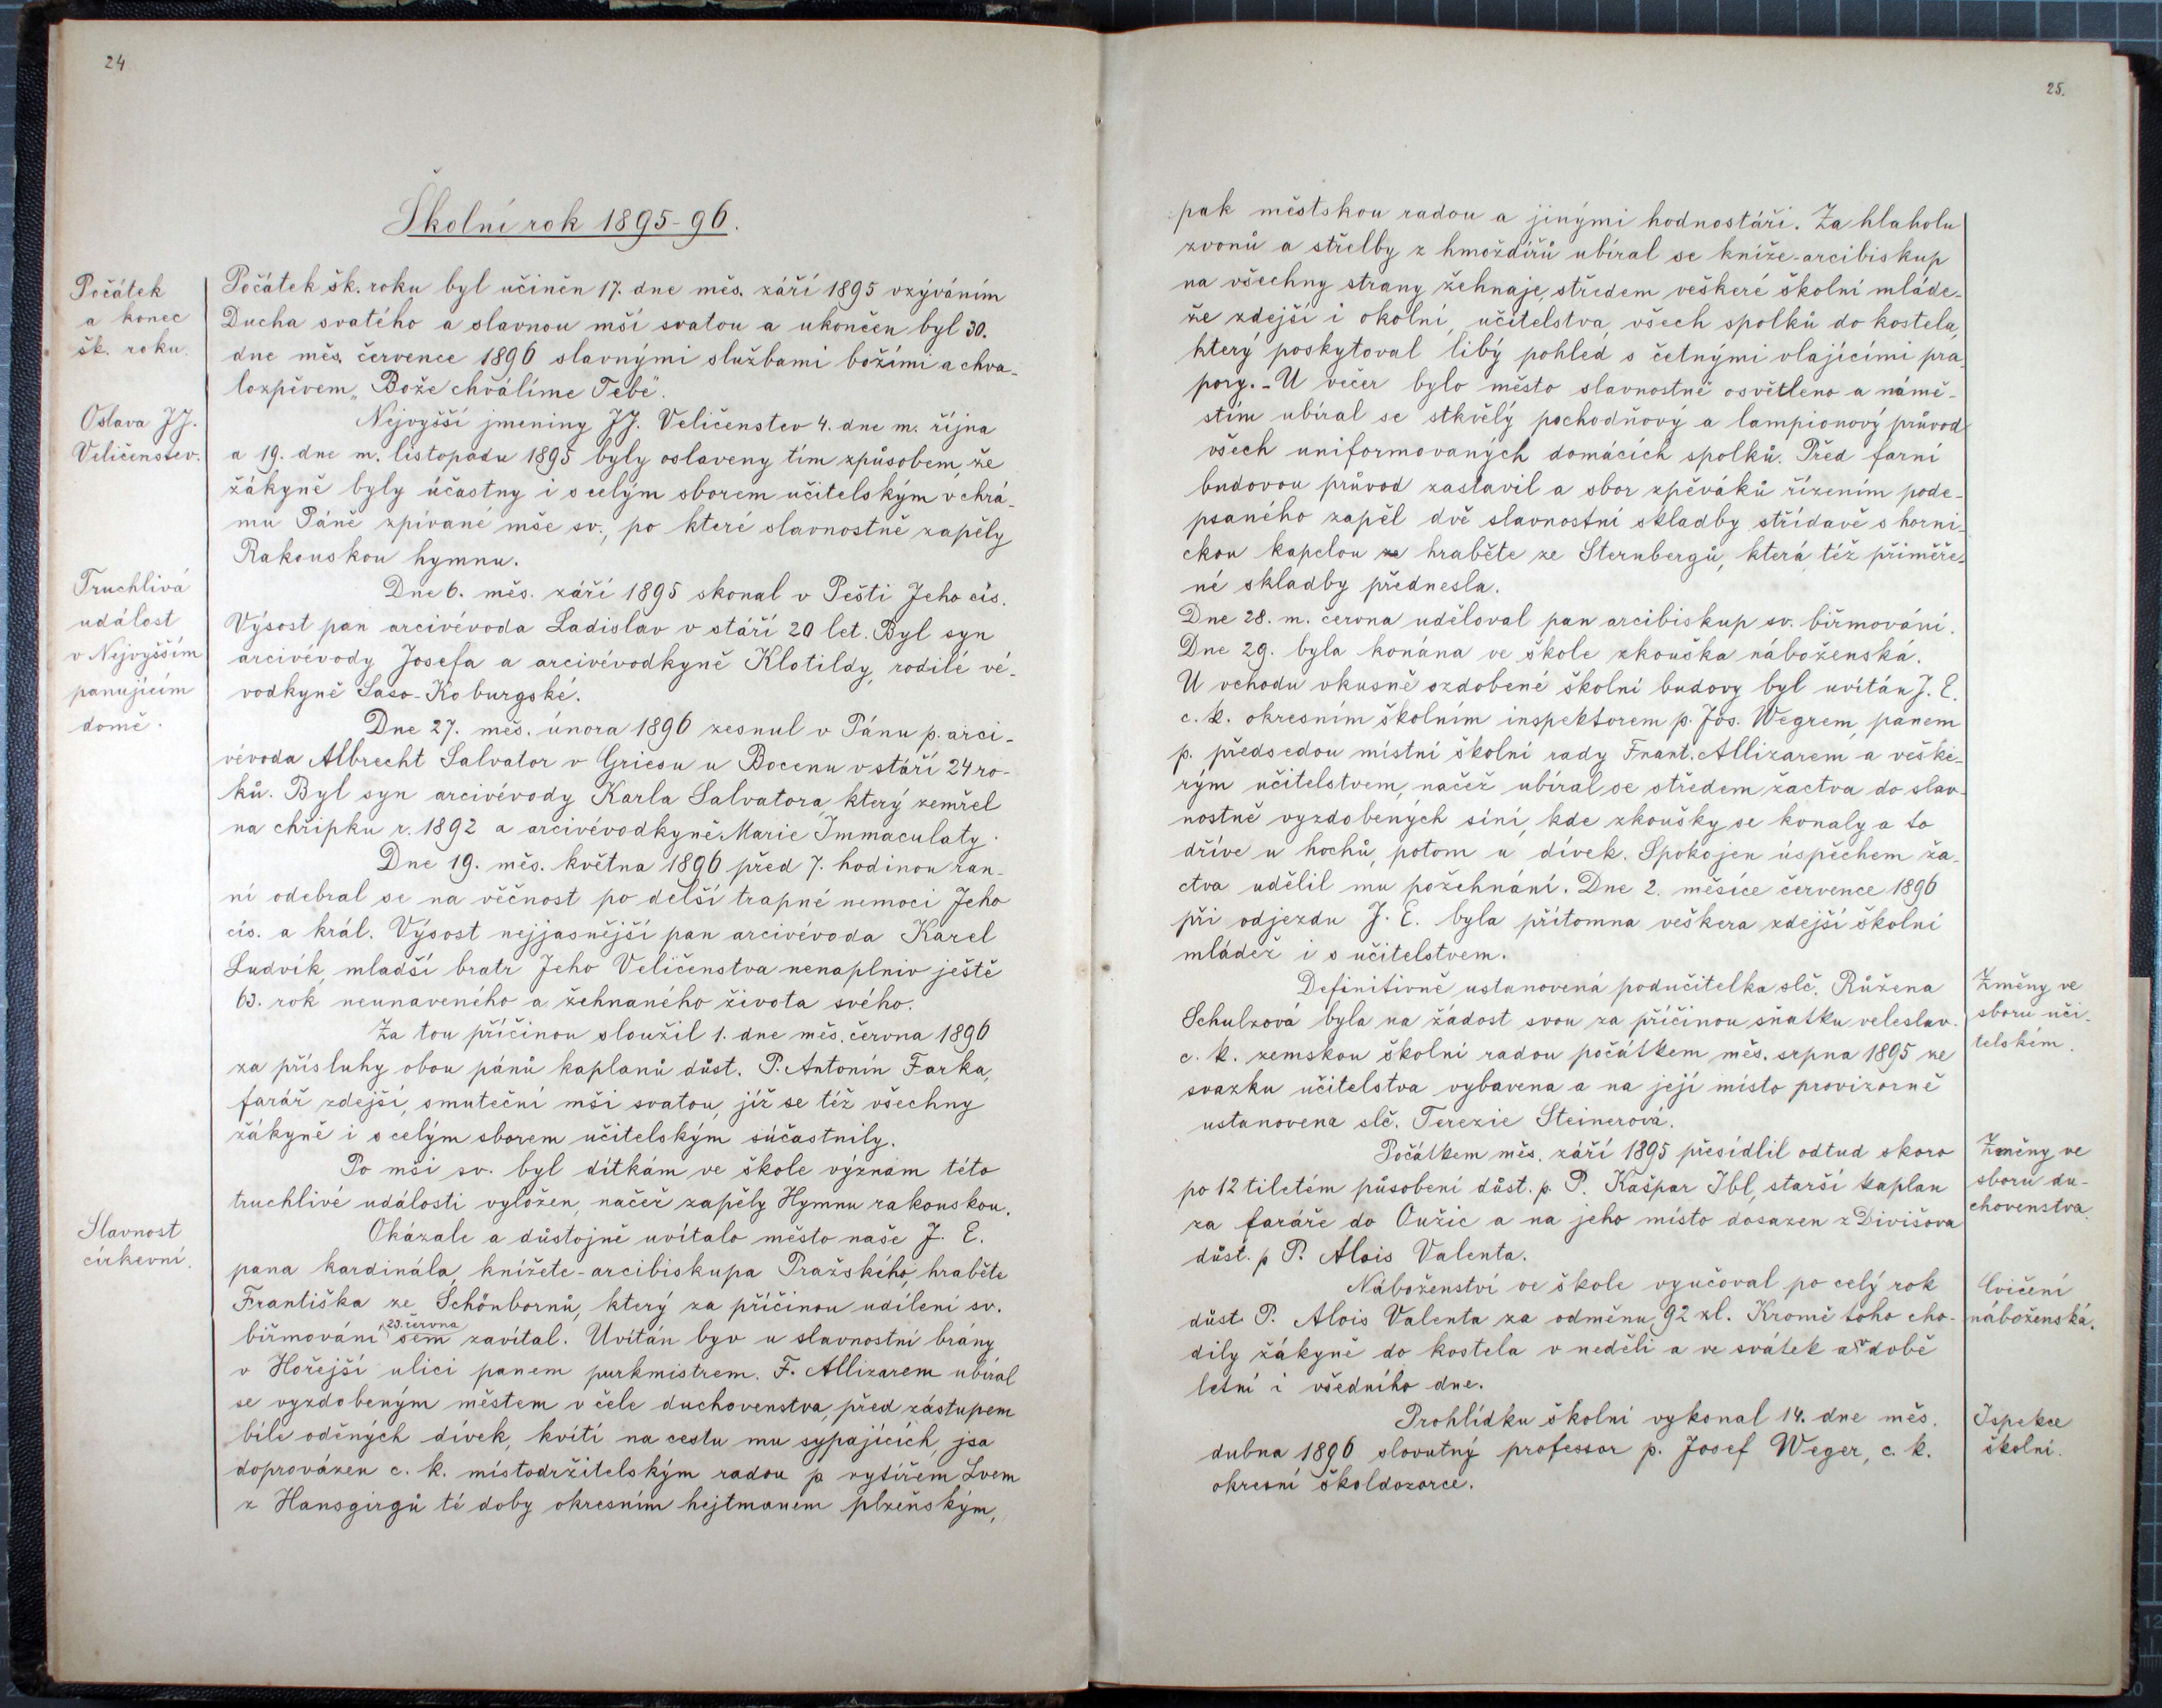 24
Školní rok 1895-96.
Počátek
a konec
šk. roku.
Počátek šk. roku byl učiněn 17. dne měs. září 1895 vzýváním
Ducha svatého a slavnou mší svatou a ukončen byl 30.
dne měs. července 1896 slavnými službami božími a chva-
lozpěvem „Bože chválíme Tebe“.
Oslava JJ.
Veličenstev.
Nejvyšší jmeniny JJ. Veličenstev 4. dne m. října
a 19. dne m. listopadu 1895 byly oslaveny tím způsobem, že
žákyně byly účastny i s celým sborem učitelským v chrá-
mu Páně zpívané mše sv., po které slavnostně zapěly
Rakouskou hymnu.
Truchlivá
událost
v Nejvyšším
panujícím
domě.
Dne 6. měs. září 1895 skonal v Pešti Jeho cís.
Výsost pan arcivévoda Ladislav v stáří 20 let. Byl syn
arcivévody Josefa a arcivévodkyně Klotildy, rodilé vé-
vodkyně Saso-Koburgské.
Dne 27. měs. února 1896 zesnul v Pánu p. arci-
vévoda Albrecht Salvator v Griesu u Bocenu v stáří 24 ro-
ků. Byl syn arcivévody Karla Salvatora, který zemřel
na chřipku r. 1892 a arcivévodkyně Marie Immaculaty.
Dne 19. měs. května 1896 před 7. hodinou ran-
ní odebral se na věčnost po delší trapné nemoci Jeho
cís. a král. Výsost nejjasnější pan arcivévoda Karel
Ludvík, mladší bratr Jeho Veličenstva nenaplniv ještě
63. rok neunaveného a žehnaného života svého.
Za tou příčinou sloužil 1. dne měs. června 1896
za přísluhy obou pánů kaplanů důst. P. Antonín Farka,
farář zdejší, smuteční mši svatou, jíž se též všechny
žákyně i s celým sborem učitelským súčastnily.
Po mši sv. byl dítkám ve škole význam této
truchlivé události vyložen, načež zapěly Hymnu rakouskou.
Slavnost
církevní.
Okázale a důstojně uvítalo město naše J. E.
pana kardinála, knížete-arcibiskupa Pražského, hraběte
Františka ze Schönbornů, který za příčinou udílení sv.
biřmování 23. června sem zavítal. Uvítán byv u slavnostní brány
v Hořejší ulici panem purkmistrem. F. Allizarem ubíral
se vyzdobeným městem v čele duchovenstva, před zástupem
bíle oděných dívek, kvítí na cestu mu sypajících, jsa
doprovázen c. k. místodržitelským radou p. rytířem Lvem
z Hansgirgů té doby okresním hejtmanem plzeňským,
25.
pak městskou radou a jinými hodnostáři. Za hlaholu
zvonů a střelby z hmoždířů ubíral se kníže-arcibiskup
na všechny strany žehnaje, středem veškeré školní mláde-
že zdejší i okolní, učitelstva, všech spolků do kostela,
který poskytoval libý pohled s četnými vlajícími pra-
pory. - U večer bylo město slavnostně osvětleno a námě-
stím ubíral se stkvělý pochodňový a lampionový průvod
všech uniformovaných domácích spolků. Před farní
budovou průvod zastavil a sbor zpěváků řízením pode-
psaného zapěl dvě slavnostní skladby střídavě s horni-
ckou kapelou ze hraběte ze Sternbergů, která též přiměře-
né skladby přednesla.
Dne 28. m. června uděloval pan arcibiskup sv. biřmování.
Dne 29. byla konána ve škole zkouška náboženská.
U vchodu vkusně ozdobené školní budovy byl uvítán J. E.
c. k. okresním školním inspektorem p. Jos. Wegrem, panem
p. předsedou místní školní rady Frant. Allizarem a veške-
rým učitelstvem, načež ubíral se středem žactva do slav-
nostně vyzdobených síní, kde zkoušky se konaly a to
dříve u hochů, potom u dívek. Spokojen úspěchem ža-
ctva udělil mu požehnání. Dne 2. měsíce července 1896
při odjezdu J. E. byla přítomna veškera zdejší školní
mládež i s učitelstvem.
Definitivně ustanovená podučitelka slč. Růžena
Schulzová byla na žádost svou za příčinou sňatku veleslav.
c. k. zemskou školní radou počátkem měs. srpna 1895 ze
svazku učitelstva vybavena a na její místo provizorně
ustanovena slč. Terezie Steinerová.
Změny ve
sboru uči-
telském.
Počátkem měs. září 1895 přesídlil odtud skoro
po 12 tiletém působení důst. p. P. Kašpar Ibl, starší kaplan
za faráře do Oužic a na jeho místo dosazen z Divišova
důst. p P. Alois Valenta.
Změny ve
sboru du-
chovenstva.
Náboženství ve škole vyučoval po celý rok
důst. P. Alois Valenta za odměnu 92 zl. Kromě toho cho-
dily žákyně do kostela v neděli a ve svátek a v době
letní i všedního dne.
Cvičení
náboženská.
Prohlídku školní vykonal 14. dne měs.
dubna 1896 slovutný professor p. Josef Weger, c. k.
okresní školdozorce.
Ispekce
školní.